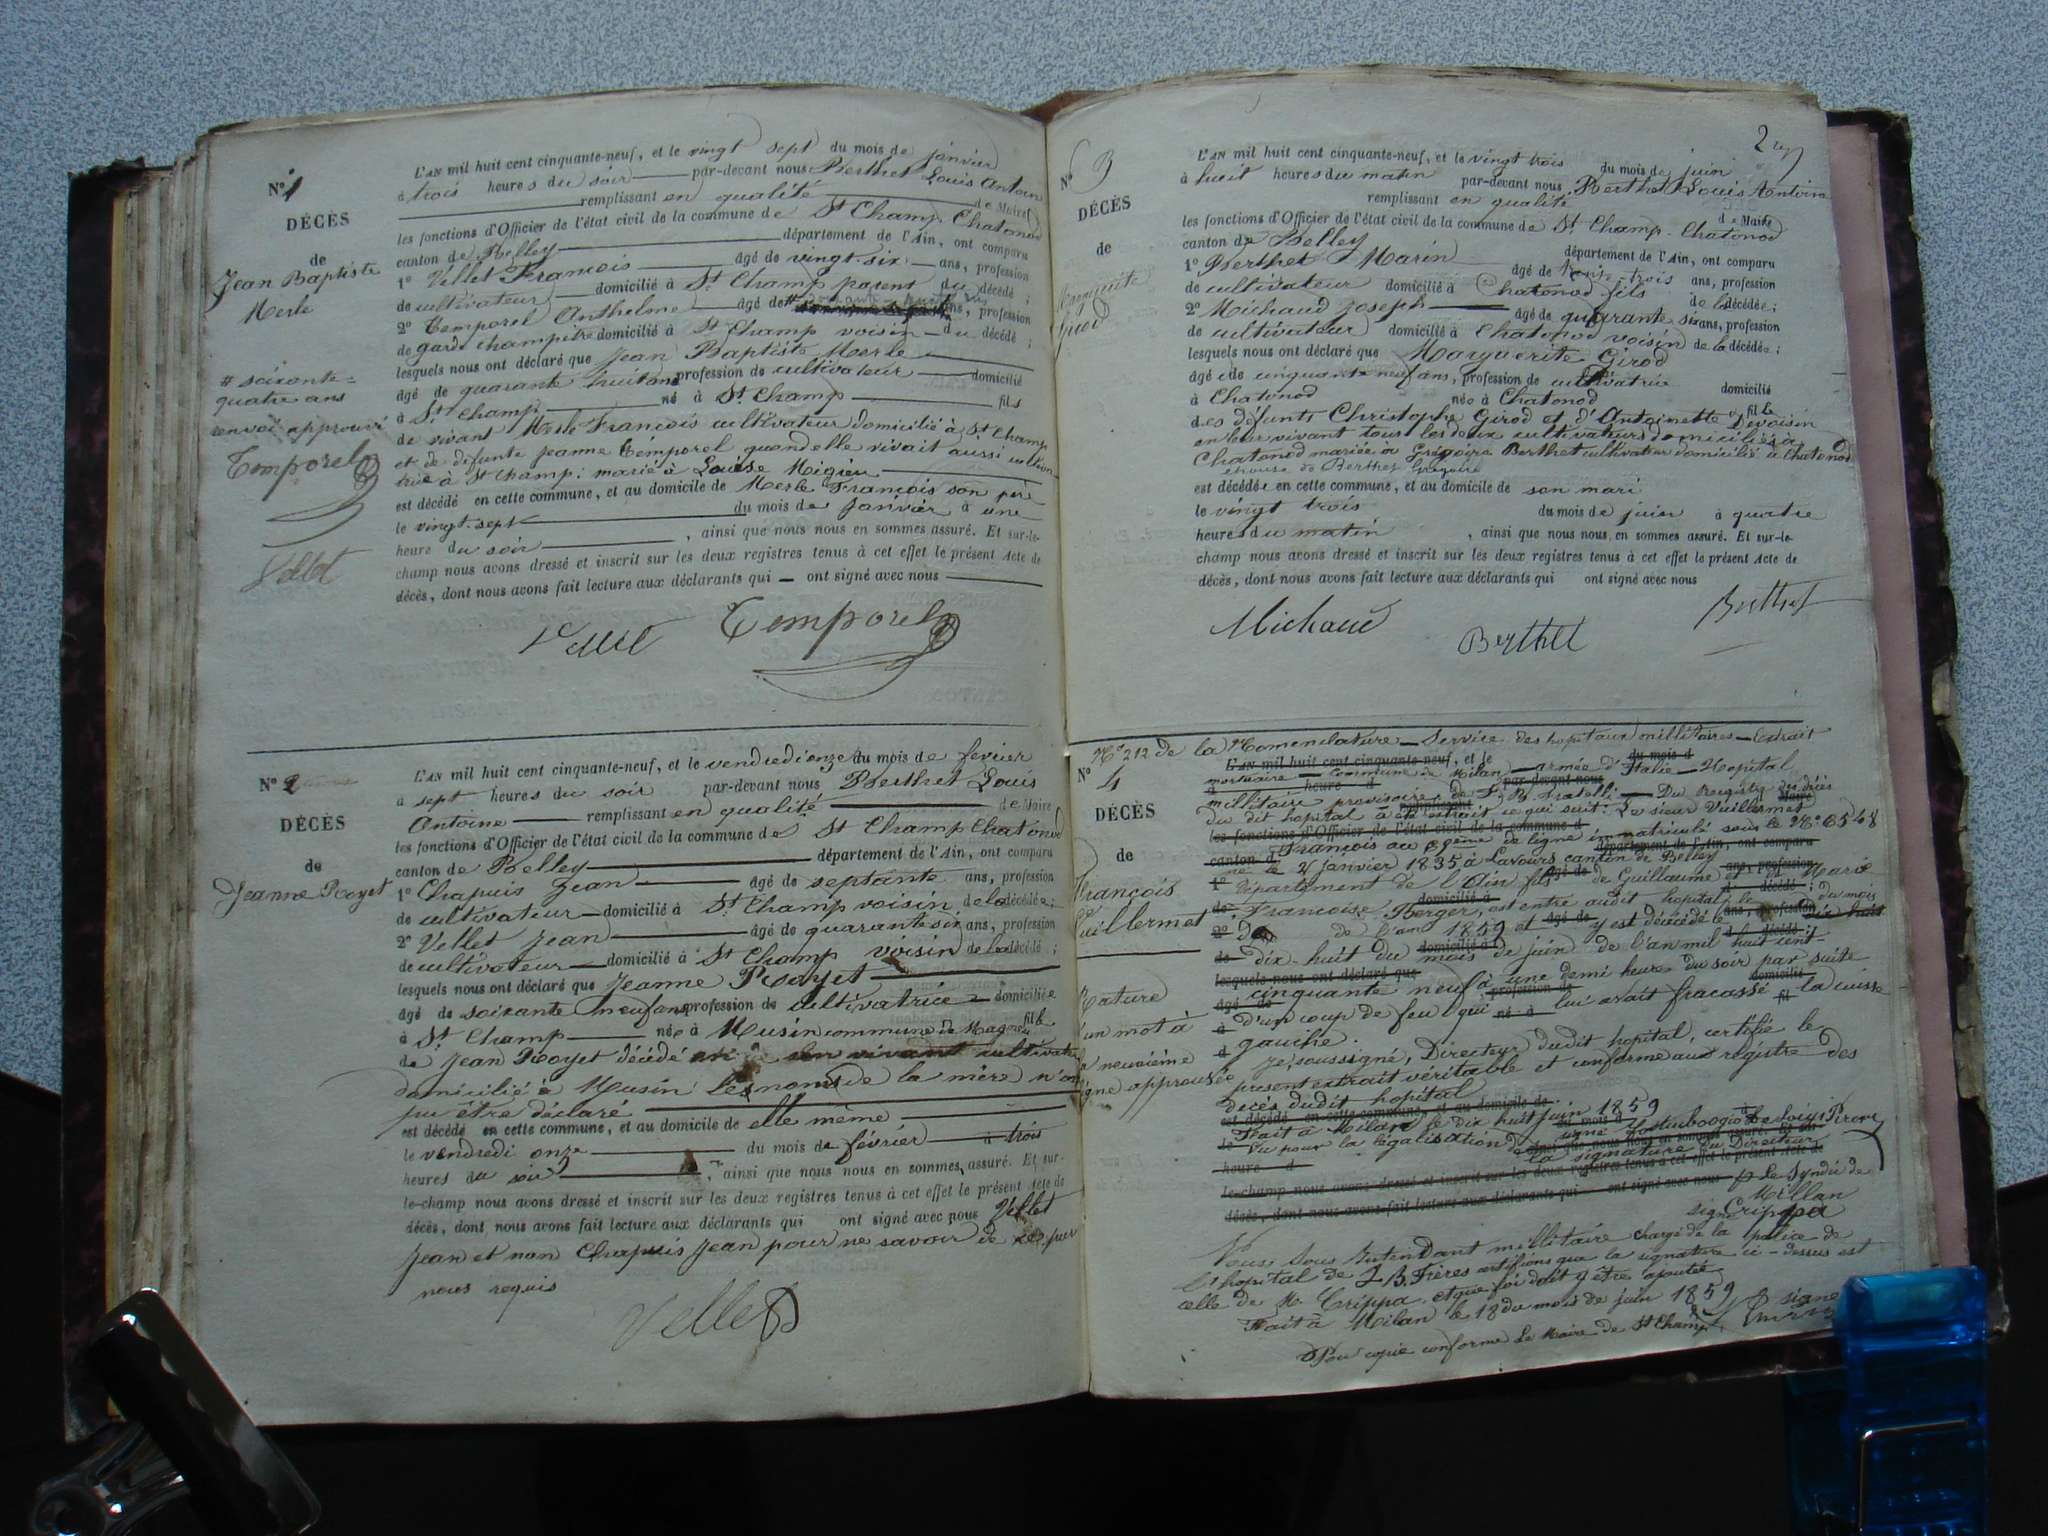 N° 1
DÉCÈS
de
Jean Baptiste
Merle
# soixante=
quatre ans
renvoi approuvé
Temporel
Vellet
L'AN mil huit cent cinquante-neuf, et le vingt sept du mois de janvier
à trois heures du soir par-devant nous Berthet Louis Antoine
remplissant en qualité de Maire
les fonctions d'Officier de l'état civil de la commune de St Champ Chatonod
canton de Belley département de l'Ain, ont comparu
1° Vellet François âgé de vingt-six ans, profession
de cultivateur domicilié à St Champ parent du décédé ;
2° Temporel Anthelme âgé de # ans, profession
de garde champêtre domicilié à St Champ voisin du décédé ;
lesquels nous ont déclaré que Jean Baptiste Merle
âgé de quarante huit ans profession de cultivateur domicilié
à St Champ né à St Champ fils
de vivant Merle François cultivateur domicilié à St Champ
et de défunte jeanne Temporel quand elle vivait aussi cultiva
trice à St Champ : marié à Louise Migieu
est décédé en cette commune, et au domicile de Merle François son père
le vingt-sept du mois de janvier à une
heure du soir , ainsi que nous nous en sommes assuré. Et sur-le-
champ nous avons dressé et inscrit sur les deux registres tenus à cet effet le présent Acte de
décès, dont nous avons fait lecture aux déclarants qui ont signé avec nous
Vellet Temporel
N° 2
DÉCÈS
de
Jeanne Royet
L'AN mil huit cent cinquante-neuf, et le vendredi onze du mois de fevrier
à sept heures du soir par-devant nous Berthet Louis
Antoine remplissant en qualité de Maire
les fonctions d'Officier de l'état civil de la commune de St Champ Chatonod
canton de Belley département de l'Ain, ont comparu
1° Chapuis Jean âgé de septante ans, profession
de cultivateur domicilié à St Champ voisin de la décédée ;
2° Vellet Jean âgé de quarante six ans, profession
de cultivateur domicilié à St Champ voisin de la décédé ;
lesquels nous ont déclaré que Jeanne Royet
âgé de soixante neuf ans profession de cultivatrice domiciliée
à St Champ née à Musin commune de Magnieu fille
de Jean Royet décédé en son vivant cultivateur
domicilié à Musin les noms de la mère n'ont
pu être déclaré
est décédé en cette commune, et au domicile de elle même
le vendredi onze du mois de février à trois
heures du soir , ainsi que nous nous en sommes assuré. Et sur-
le-champ nous avons dressé et inscrit sur les deux registres tenus à cet effet le présent Acte de
décès, dont nous avons fait lecture aux déclarants qui ont signé avec nous Vellet
Jean et non Chapuis Jean pour ne savoir de ce par
nous requis
Vellet
2
N° 3
DÉCÈS
de
Marguerite
Girod
L'AN mil huit cent cinquante-neuf, et le vingt trois du mois de juin
à huit heures du matin par-devant nous Berthet Louis Antoine
remplissant en qualité de Maire
les fonctions d'Officier de l'état civil de la commune de St Champ-Chatonod
canton de Belley département de l'Ain, ont comparu
1° Berthet Marin âgé de trente-trois ans, profession
de cultivateur domicilié à Chatonod fils de la décédée ;
2° Michaud Joseph âgé de quarante six ans, profession
de cultivateur domicilié à Chatonod voisin de la décédée ;
lesquels nous ont déclaré que Marguerite Girod
âgée de cinquante neuf ans, profession de cultivatrice domicilié
à Chatonod née à Chatonod fille
des défunts Christophe Girod et d'Antoinette Devoisin
en leur vivant tous les deux cultivateurs domiciliés à
Chatonod mariée a Grégoire Berthet cultivateur domicilié à Chatonod
épouse de Berthet Grégoire
est décédée en cette commune, et au domicile de son mari
le vingt trois du mois de juin à quatre
heures du matin , ainsi que nous nous en sommes assuré. Et sur-le-
champ nous avons dressé et inscrit sur les deux registres tenus à cet effet le présent Acte de
décès, dont nous avons fait lecture aux déclarants qui ont signé avec nous
Michaud Berthet Berthet
N° 4
DÉCÈS
de
François
Vuillermet
Rature
d'un mot à
la neuvième
ligne approuvée
N° 212 de la Nomenclature — Service des hopitaux millitaires — Extrait
mortuaire — Commune de Milan — armée d'Italie — Hopital
millitaire provisoire de F. B. Fratelli — Du registre des décès
du dit hopital à été extrait ce qui suit : Le sieur Vuillermet
François au ligne immatriculé sous le N° 6548
né le 2 janvier 1835 à Lavours canton de Belley
département de l'Ain fils de Guillaume et de Marie
Françoise Berger, est entré audit hopital le du mois
de de l'an 1859 et y est décédé le
dix-huit du mois de juin de l'an mil huit cent
cinquante neuf à une demi heure du soir par suite
d'un coup de feu qui lui avait fracassé la cuisse
gauche.
Je, soussigné, Directeur dudit hopital, certifie le
présent extrait véritable et conforme aux registre des
décès dudit hopital
Fait à Milan le dix huit juin 1859
Vu pour la légalisation de la signature du Directeur
p Le Syndic de
Millan
signé Crippa
Nous Sous Intendant millitaire chargé de la police de
l'hopital de J B. Frères certifions que la signature ci-dessus est
celle de M. Crippa et que foi doit y être ajoutée
Fait à Milan le 18 du mois de juin 1859 signé
Pour copie conforme Le Maire de St Champ